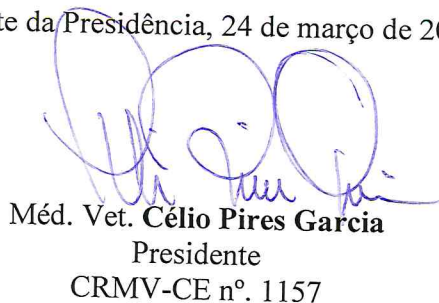 te da Presidência, 24 de março de 20
Méd. Vet. Célio Pires Garcia
Presidente
CRMV-CE nº. 1157